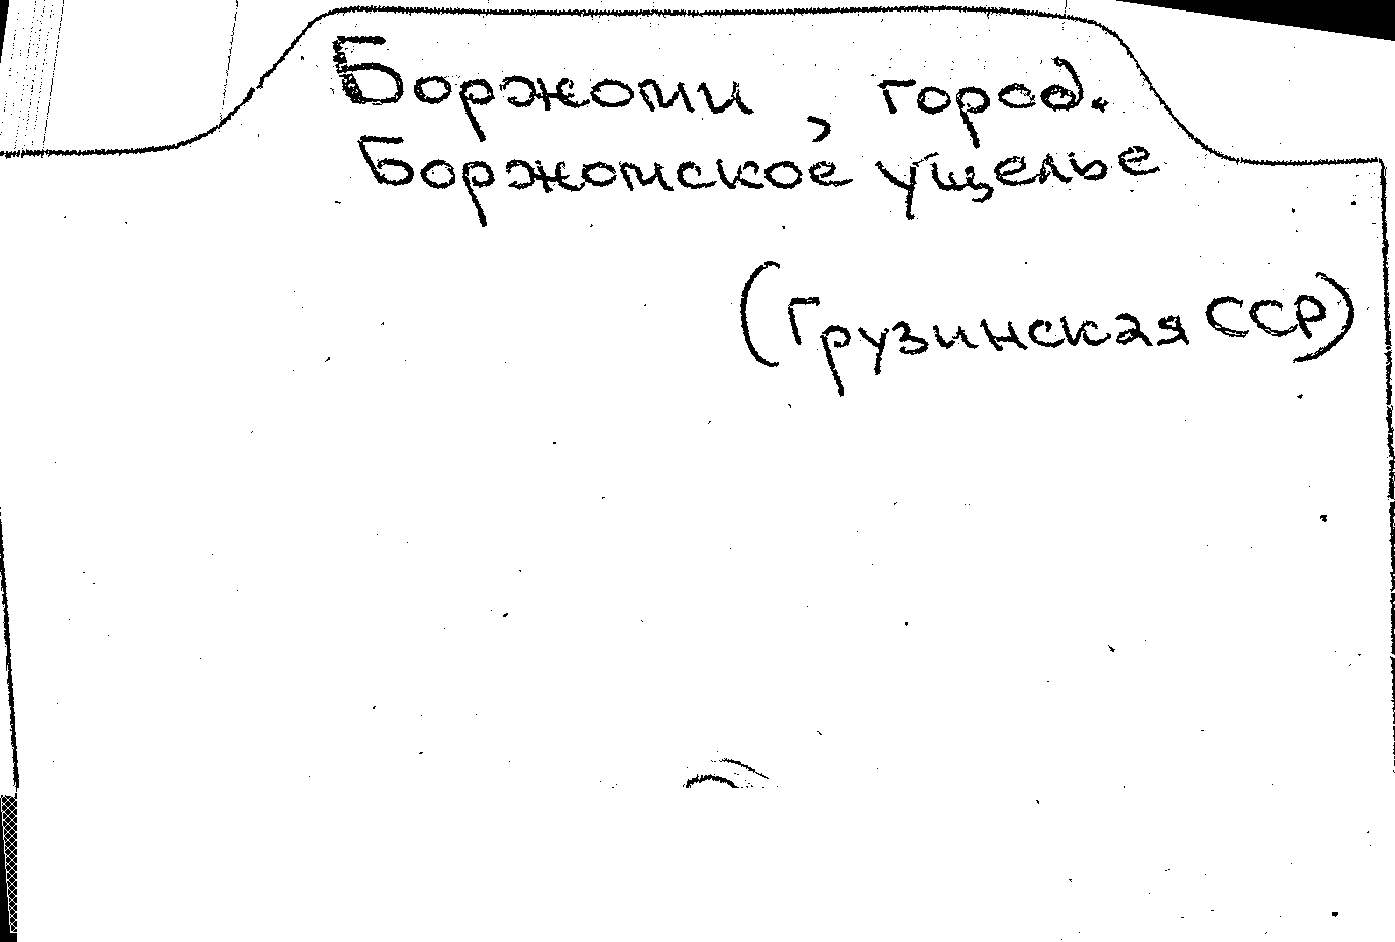 Боржоми, город.
Боржомское ущелье
(Грузинская ССР)